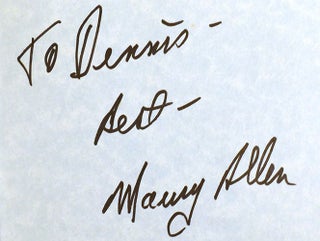 To Dennis-
Best-
Maury Allen